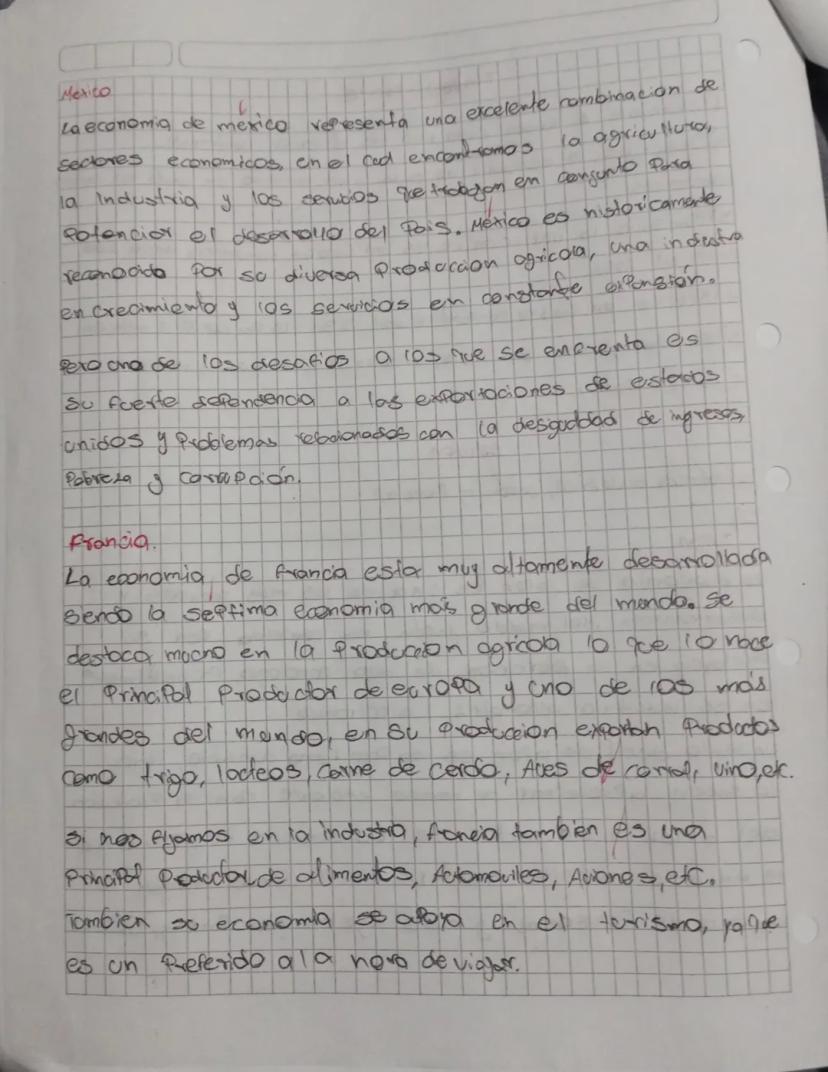 Mexico
La economia de mexico representa una excelente combinacion de
sectores economicos, en el cual encontramos la agricultura,
la industria y los servicios que trabajan en conjunto para
potenciar el desarrollo del Pais. México es historicamente
reconocido por su diversa produccion agricola, una industria
en crecimiento y los servicios en constante expansión.
pero uno de los desafios a los que se enfrenta es
su fuerte dependencia a las exportaciones de estados
unidos y problemas relacionados con la desigualdad de ingresos,
pobreza y corrupción.
Francia.
La economia de francia esta muy altamente desarrollada
siendo la septima economia más grande del mundo. se
destaca mucho en la produccion agricola lo que lo hace
el principal productor de europa y uno de los más
grandes del mundo, en su produccion exportan productos
como trigo, lacteos, carne de cerdo, Aves de corral, vino, etc.
Si nos fijamos en la industria, francia tambien es una
principal productor de alimentos, Automoviles, Aviones, etc.
Tambien su economia se apoya en el turismo, ya que
es un preferido a la hora de viajar.